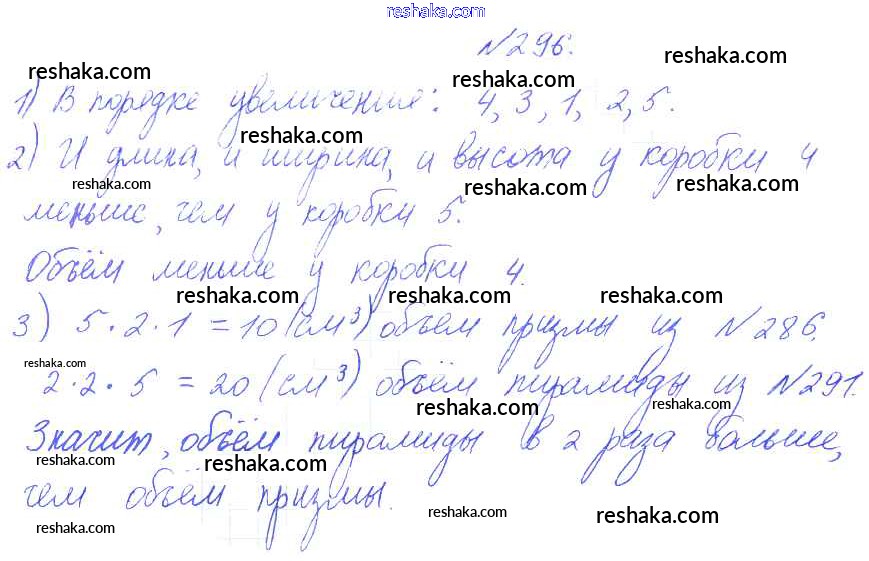 reshaka.com
№296.
reshaka.com reshaka.com reshaka.com
1) В порядке увеличение: 4, 3, 1, 2, 5.
reshaka.com
2) И длина, и ширина, и высота у коробки 4
reshaka.com reshaka.com reshaka.com
меньше, чем у коробки 5.
Объём меньше у коробки 4.
reshaka.com reshaka.com reshaka.com
3) 5·2·1 = 10 (см³) объём призмы из №286.
reshaka.com
2·2·5 = 20 (см³) объём пирамиды из №291.
reshaka.com reshaka.com
Значит, объём пирамиды в 2 раза больше,
reshaka.com reshaka.com
чем объём призмы.
reshaka.com reshaka.com reshaka.com